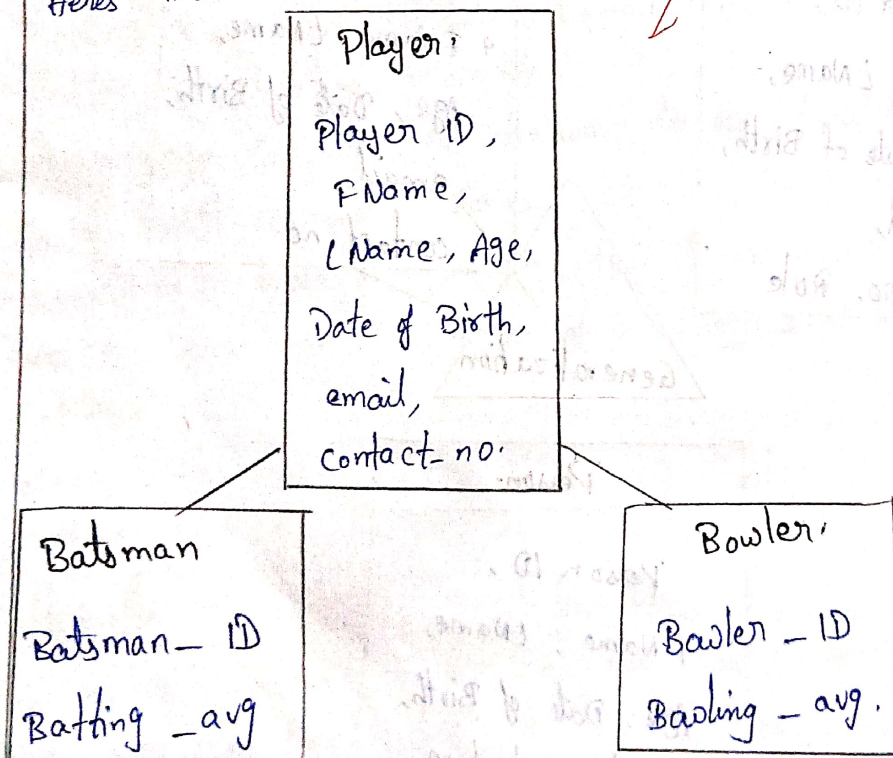 Player:
Player ID,
FName,
LName, Age,
Date of Birth,
email,
contact_no.
Batsman
Batsman_ID
Batting_avg
Bowler:
Bowler_ID
Bowling_avg.